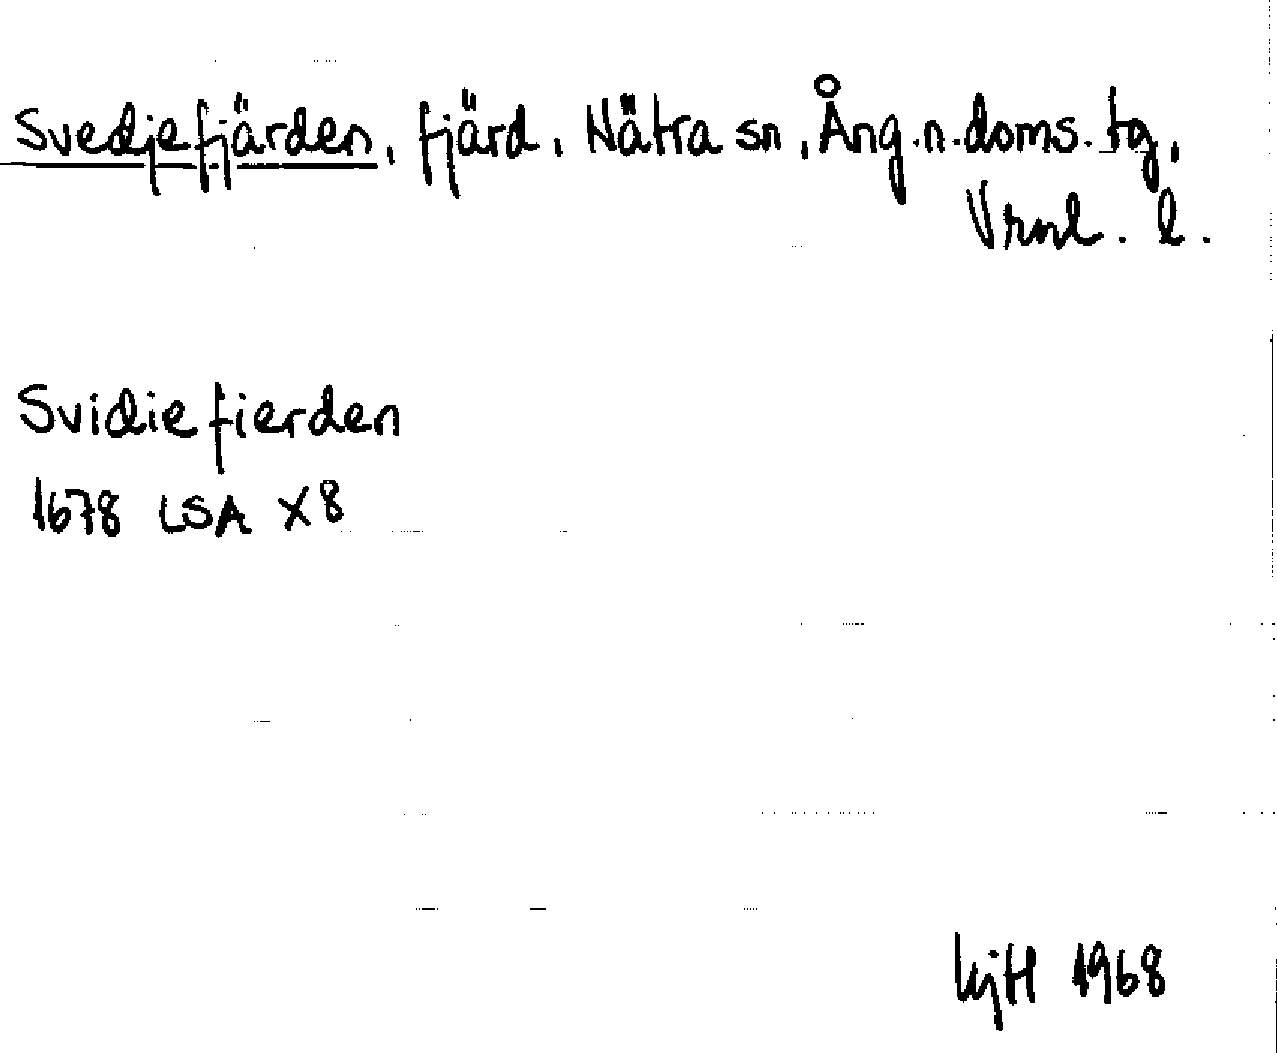 Svedjefjärden, fjärd, Nätra sn, Ång.n.doms.tg,
Vrnl. l.
Svidiefierden
1678 LSA X8
kjH 1968